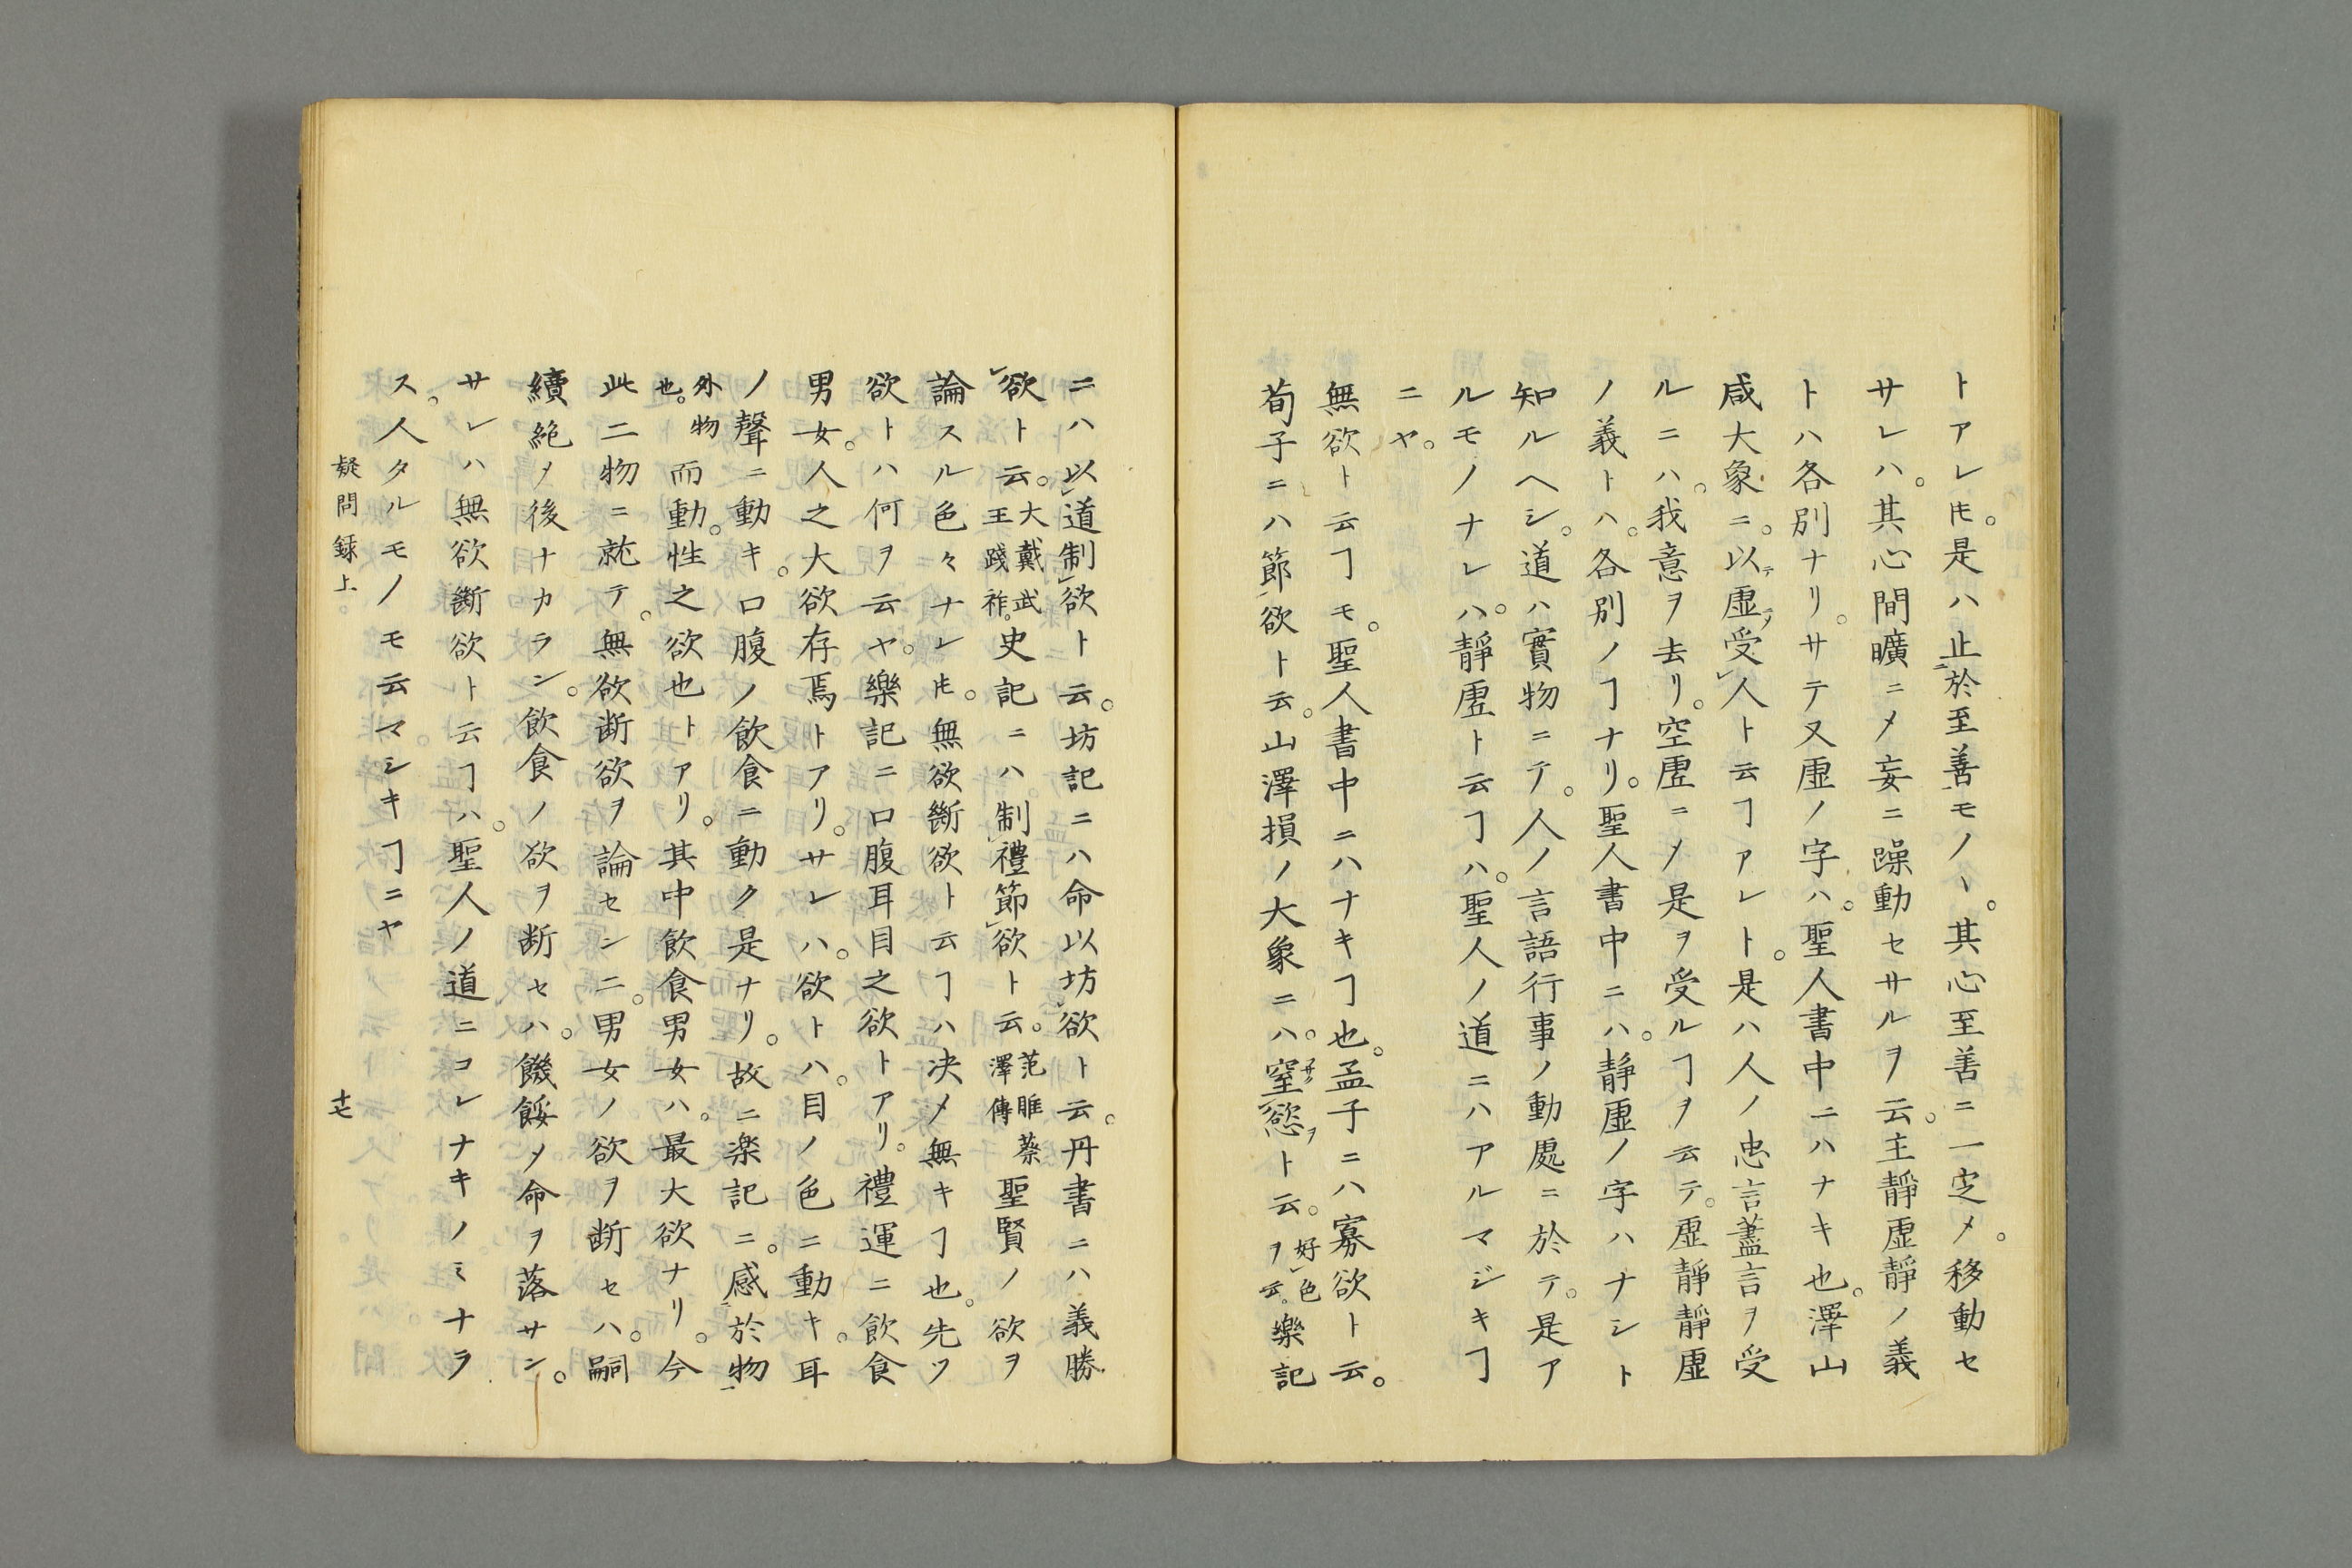 トアレ𪜈。是ハ止於至善モノヽ。其心至善ニ一定メ。移動セ
サレハ。其心間曠ニメ妄ニ躁動セサルヲ云。主靜虛靜ノ義
トハ各別ナリ。サテ又虛ノ字ハ。聖人書中ニハナキ也。澤山
咸大象ニ。以テ虛ヲ受人ト云ヿアレト。是ハ人ノ忠言藎言ヲ受
ルニハ。我意ヲ去リ。空虛ニメ是ヲ受ルヿヲ云テ。虛靜靜虛
ノ義トハ。各別ノヿナリ。聖人書中ニハ。静虛ノ字ハナシト
知ルヘシ。道ハ實物ニテ。人ノ言語行事ノ動處ニ於テ。是ア
ルモノナレハ。靜虛ト云ヿハ。聖人ノ道ニハアルマジキヿ
ニヤ。
無欲ト云ヿモ。聖人書中ニハナキヿ也。孟子ニハ寡欲ト云。
荀子ニハ節欲ト云。山澤損ノ大象ニハ。窒慾ヲト云。好色ヲ云。樂記
ニハ以道制欲ト云。坊記ニハ命以坊欲ト云。丹書ニハ義勝
欲ト云。大戴武王踐祚。史記ニハ制禮節欲ト云。范雎蔡澤傳聖賢ノ欲ヲ
論スル色々ナレ𪜈。無欲斷欲ト云ヿハ决メ無キヿ也。先ツ
欲トハ何ヲ云ヤ。樂記ニ口腹耳目之欲トアリ。禮運ニ飲食
男女。人之大欲存焉トアリ。サレハ。欲トハ。目ノ色ニ動キ。耳
ノ聲ニ動キ。口腹ノ飲食ニ動ク是ナリ。故ニ楽記ニ。感於物
外物也。而動。性之欲也トアリ。其中飲食男女ハ。最大欲ナリ。今
此二物ニ就テ。無欲断欲ヲ論センニ。男女ノ欲ヲ断セハ。嗣
續絶メ後ナカラン。飲食ノ欲ヲ断セハ。饑餒メ命ヲ落サン。
サレハ無欲斷欲ト云ヿハ。聖人ノ道ニコレナキノミナラ
ス。人タルモノモ云マシキヿニヤ
疑問録上。
十七